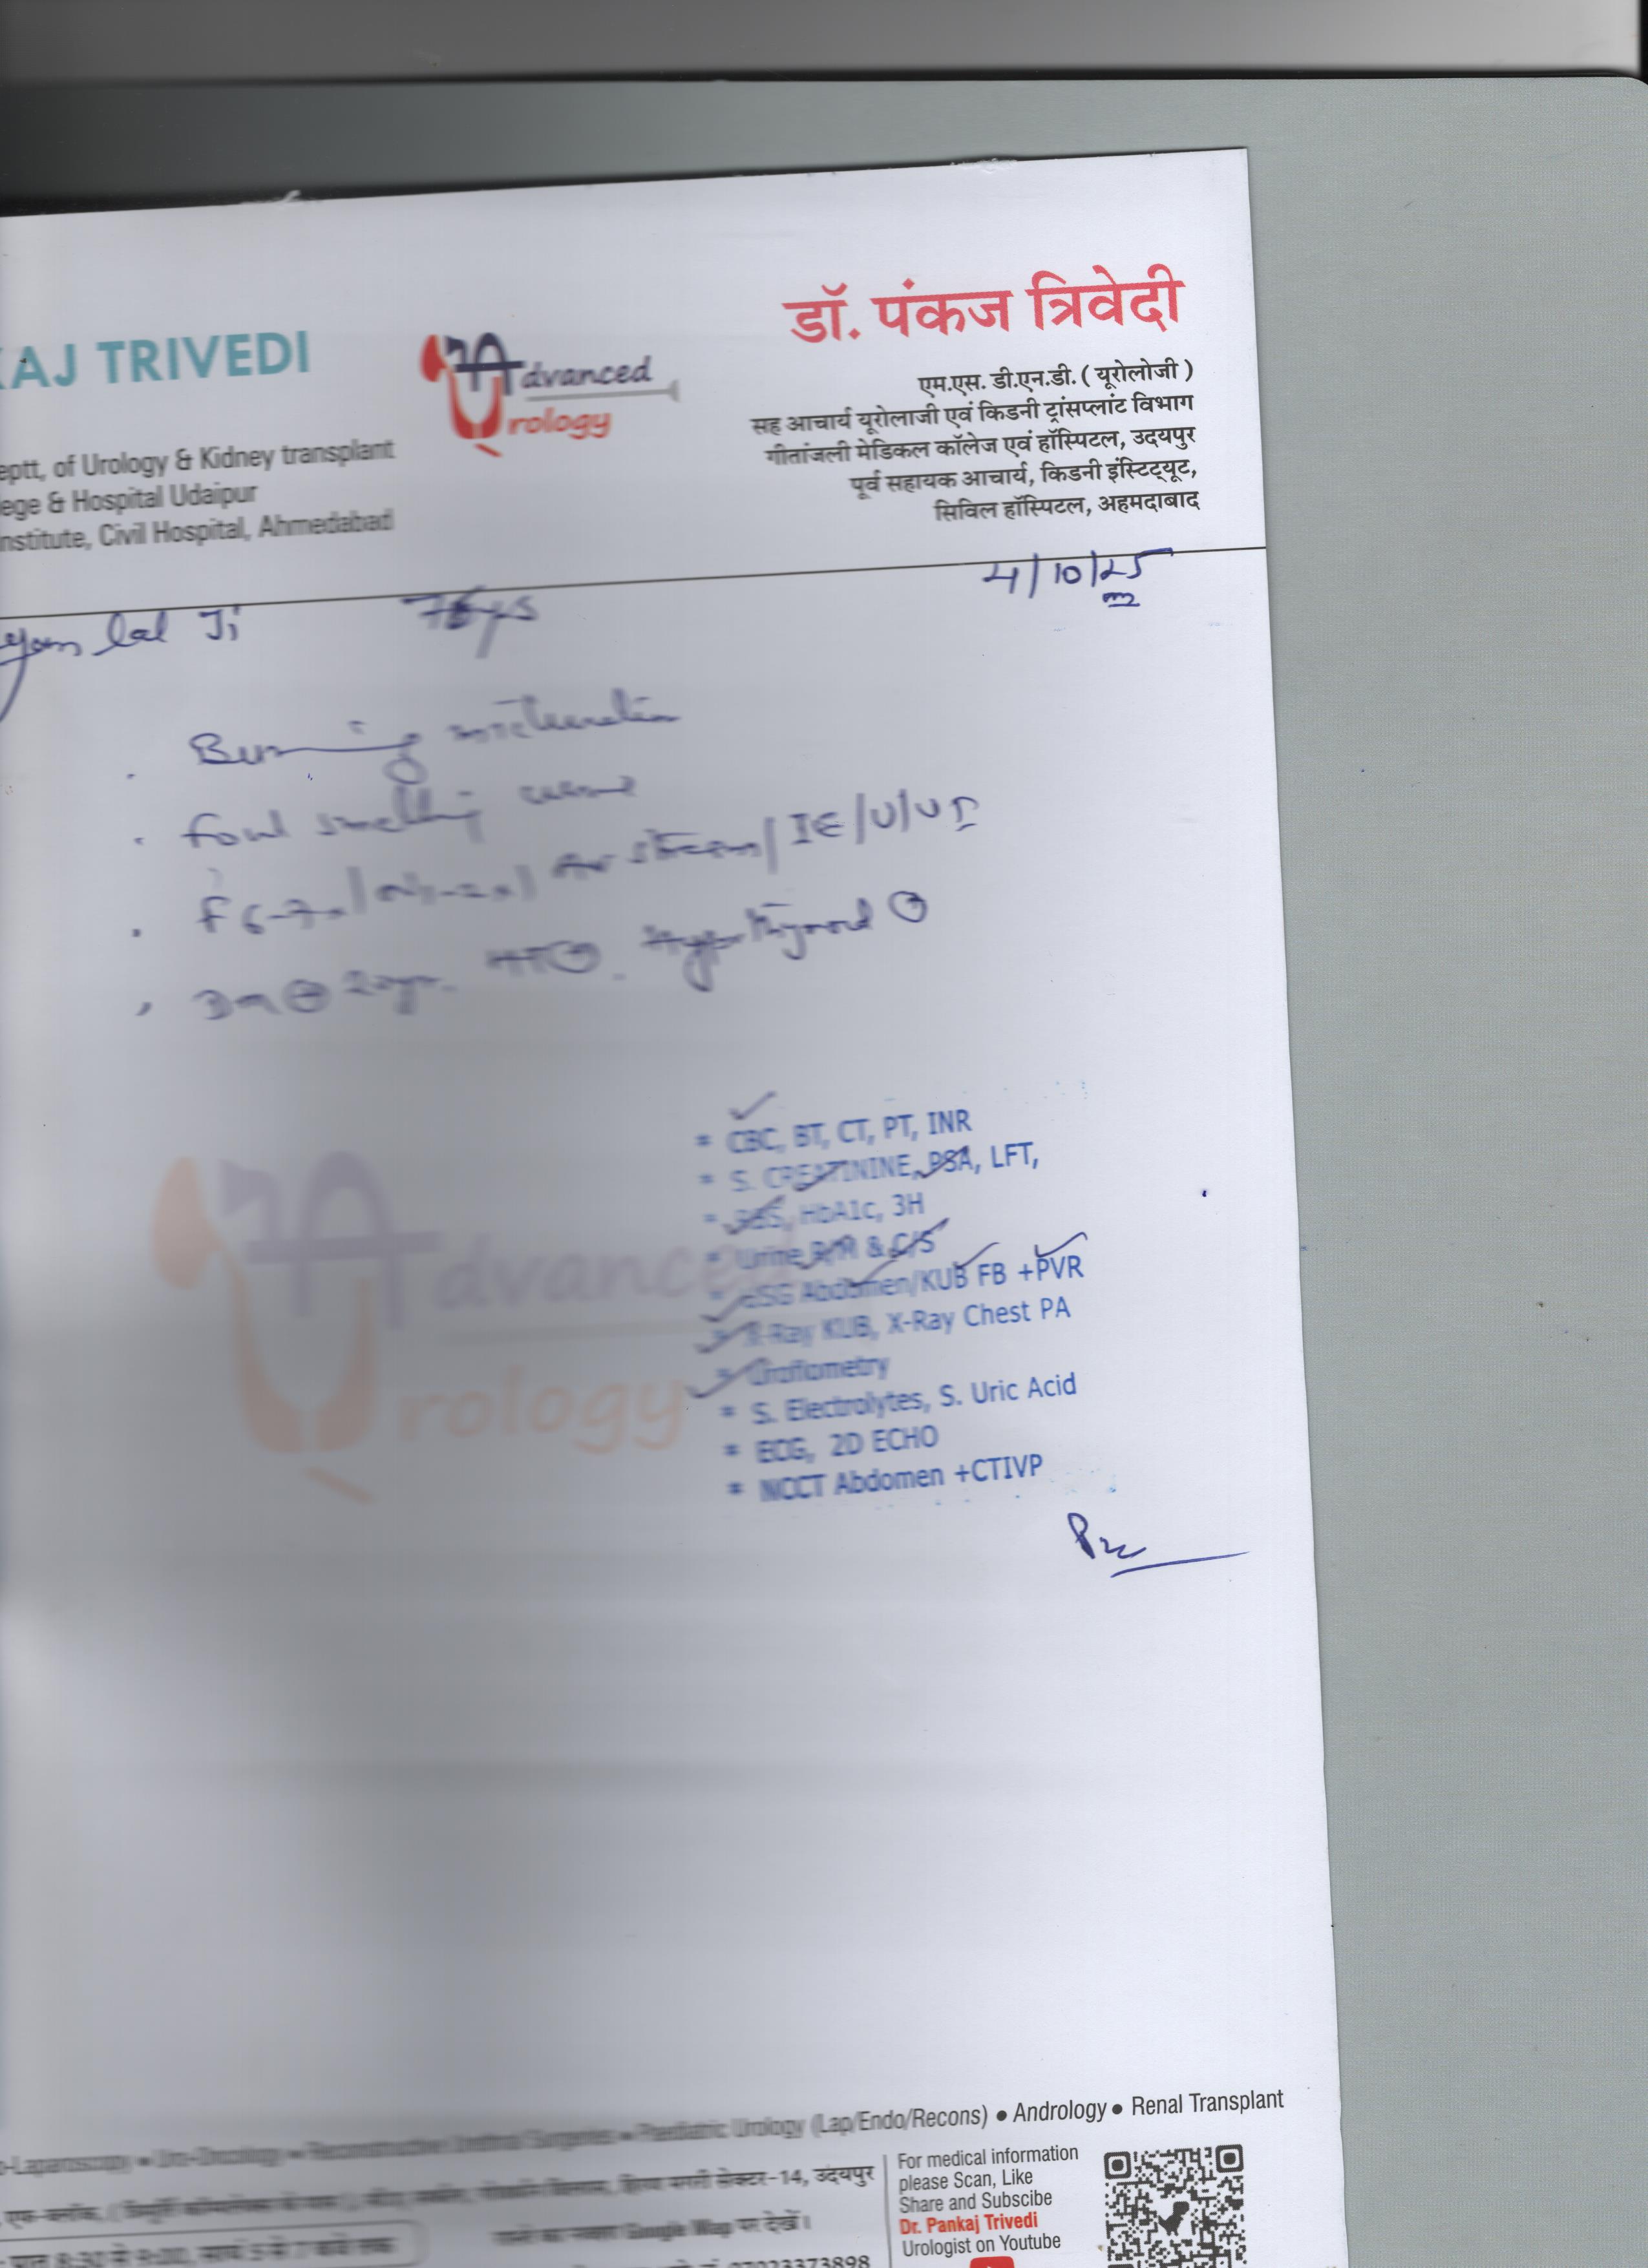 डॉ. पंकज त्रिवेदी
KAJ TRIVEDI
Advanced
Urology
एम.एस. डी.एन.डी. ( यूरोलोजी )
सह आचार्य यूरोलाजी एवं किडनी ट्रांसप्लांट विभाग
गीतांजली मेडिकल कॉलेज एवं हॉस्पिटल, उदयपुर
पूर्व सहायक आचार्य, किडनी इंस्टिट्यूट,
सिविल हॉस्पिटल, अहमदाबाद
eptt, of Urology & Kidney transplant
ege & Hospital Udaipur
nstitute, Civil Hospital, Ahmedabad
4/10/25
lal Ji
Burning micturition
foul smelling urine
stream / IE/U/UI
DM ⊕ 20yr. Hyperthyroid
* CBC, BT, CT, PT, INR
* S. CREATININE, PSA, LFT,
* RBS, HbA1c, 3H
* Urine R/M & C/S
* USG Abdomen/KUB FB +PVR
* X-Ray KUB, X-Ray Chest PA
* Uroflometry
* S. Electrolytes, S. Uric Acid
* ECG, 2D ECHO
* NCCT Abdomen +CTIVP
Advanced
Urology
o-Laparoscopy ● Uro-Oncology ● Reconstructive Urethral Surgeries ● Paediatric Urology (Lap/Endo/Recons) ● Andrology ● Renal Transplant
सेक्टर-14, उदयपुर
Google Map पर देखें।
8:30 से 9:00, सायं 5 से 7 बजे तक
07023373898
For medical information
please Scan, Like
Share and Subscibe
Dr. Pankaj Trivedi
Urologist on Youtube